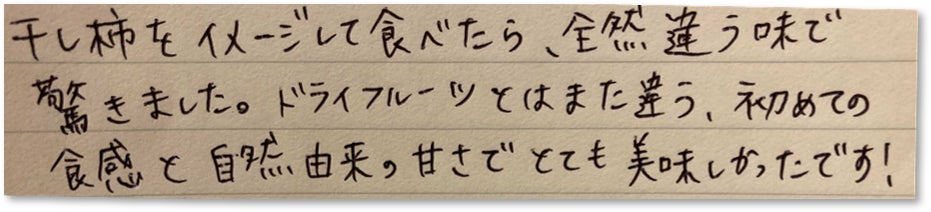 干し柿をイメージして食べたら、全然違う味で
驚きました。ドライフルーツとはまた違う、初めての
食感と自然由来の甘さでとても美味しかったです!